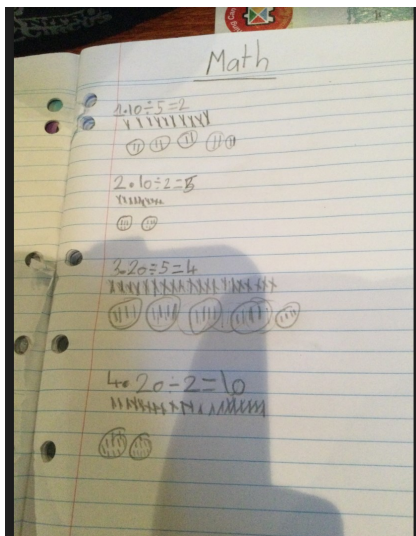 Math
1. 10÷5=2
2. 10÷2=5
3. 20÷5=4
4. 20÷2=10